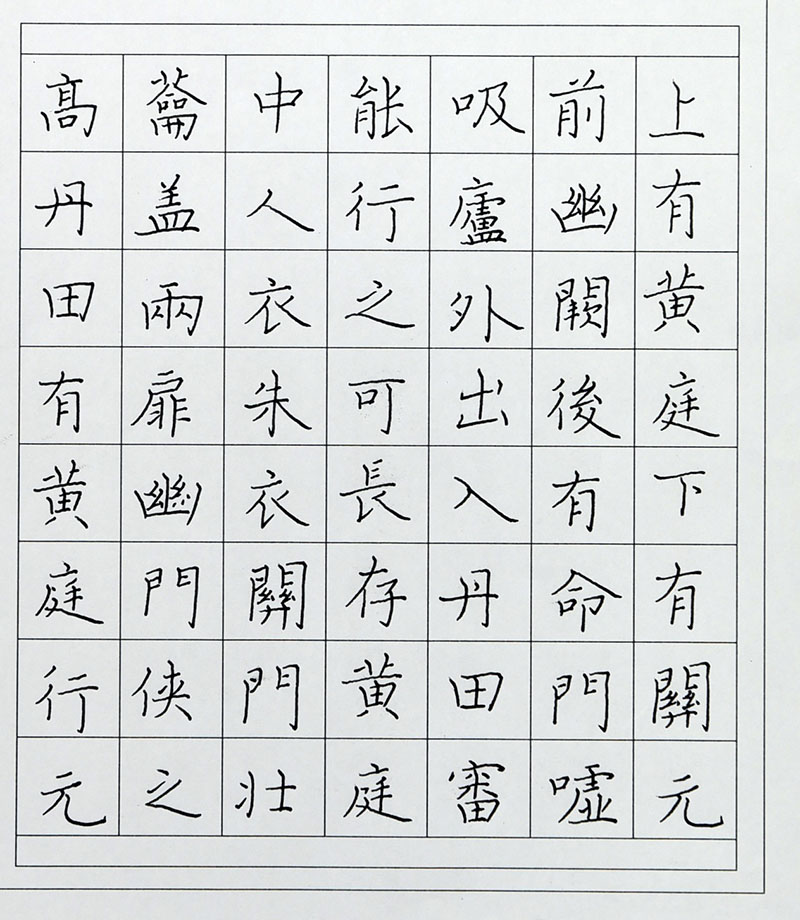 上有黄庭下有關元
前幽闕後有命門嘘
吸廬外出入丹田審
能行之可長存黄庭
中人衣朱衣關門壮
蘥盖兩扉幽門侠之
髙丹田有黄庭行元